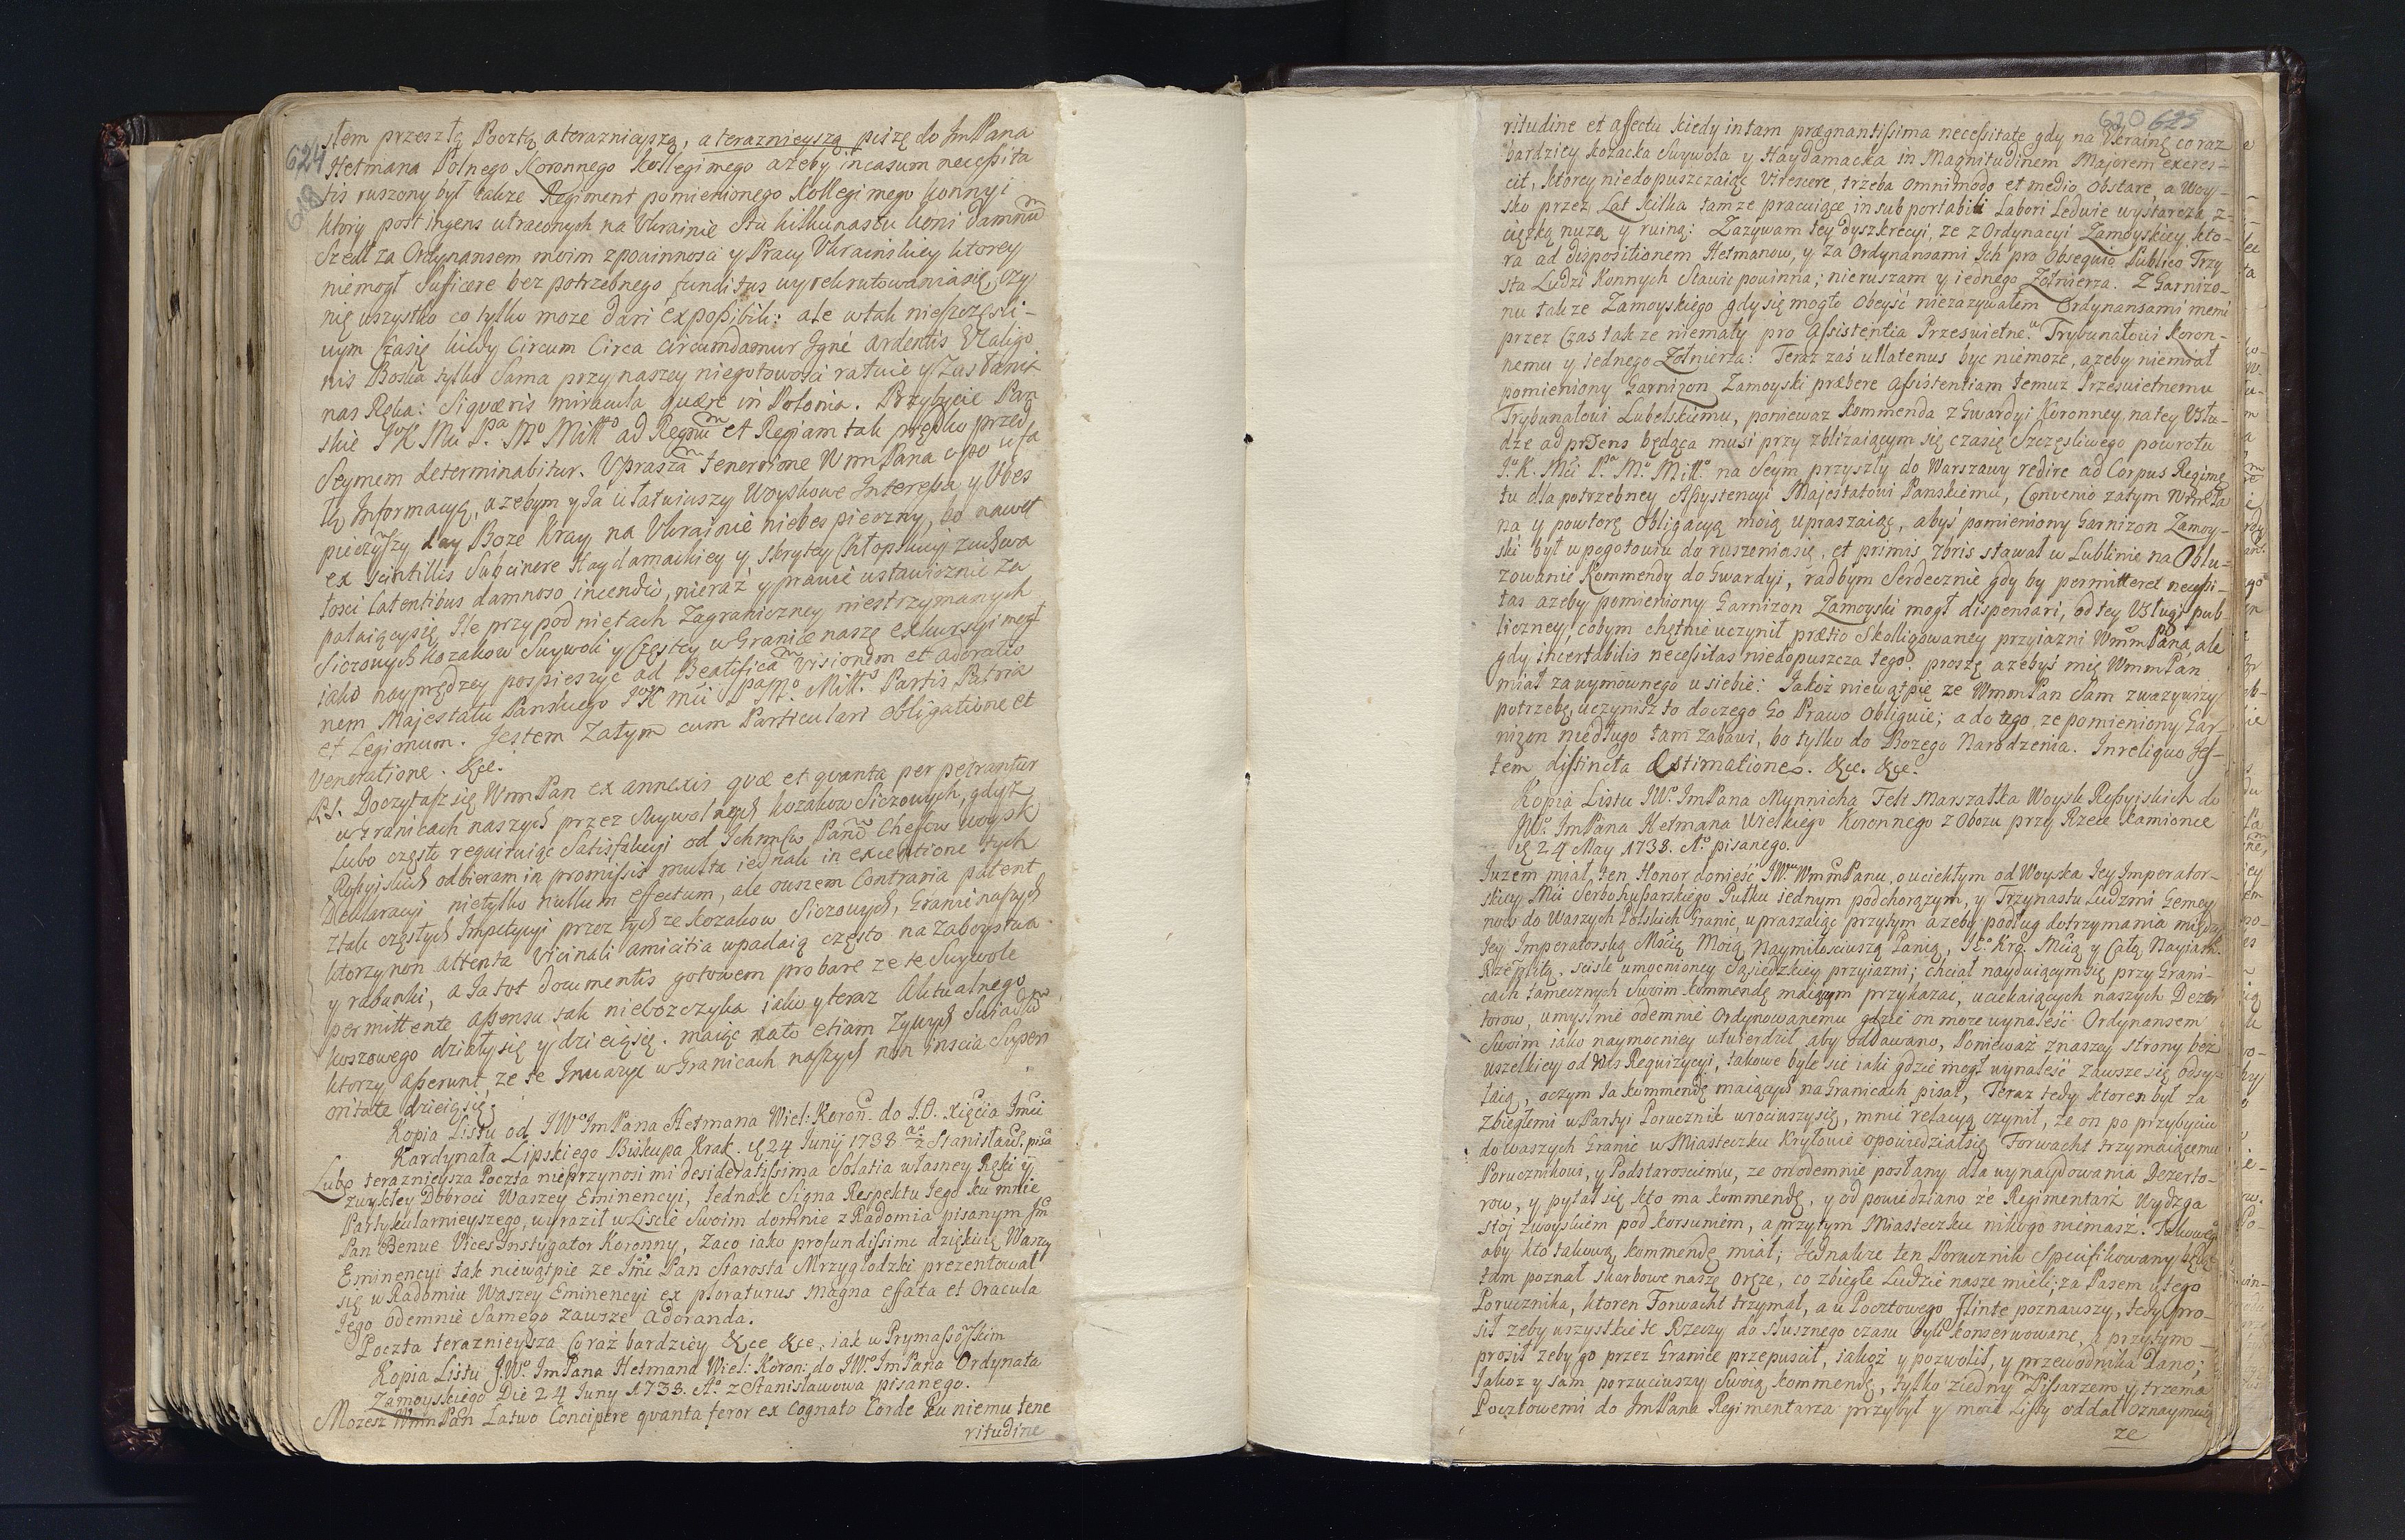 624
618
słem przeszłą Pocztą a teraznieyszą, a teraznieyszą piszę do JmPana
Hetmana Polnego Koronnego Kollegi mego azeby in casum necessita
tis ruszony był takze Regiment pomienionego Kollegi mego konnyi
ktory post ingens utraconych na Ukrainie stu kilkunastu koni damnum
szedł za Ordynansem moim z powinnosci y Pracy Ukrainskiey ktorey
niemogł sufficere bez potrzebnego funditus wyrekrutowania się, czy
nię wszystko co tylko moze dari ex possibili: ale w tak nieszczęsli-
wym Czasię kiedy Circum Circa circumdamur Igne ardentis &aligo
nis Boska tylko Sama przy naszey niegotowosci ratuie y Zasłania
nas Ręka: Si quæris miracula quære in Polonia. Przybycie Pan
skie JoK Mci Pa Mo Miłło ad Regnum et Regiam tak prędko przed
Seymem determinabitur. Upraszam tenerrime WmPana o po ufa
łą Informacyą, azebym y Ja ułatwiwszy Woyskowe Interessa y Ubes
pieczywszy day Boze Kray na Ukrainie niebespieczny, bo nawet
ex scintillis Sub cinere Haydamackiey y skrytey Chłopskiey zuchwa
łosci latentibus damnoso incendio, nieraz y prawie ustawicznie za
palaiącysię Ile przy podnietach Zagraniczney niestrzymanych
Siczowych Kozakow Swywoli y Częstey w Granice naszę exkursyi mogł
iako nayprędzey pospieszyć ad Beatificam visionem et adoratio
nem Majestatu Panskiego JoK mci paMo Miłło Partis Patria
et Legionum. Jestem Zatym cum Particulari obligatione et
Veneratione. &ce.
P.S. Doczytasz się WmPan ex annexis quæ et quanta per petrantur
w Granicach naszych przez Swywolnych Kozakow Siczowych, gdyz
lubo częste requiruiąc Satisfakcyi od Ichmciow Panow Chefow woysk
Rossyiskich odbieram in promissis multa iednak in executione tych
Deklaracyi nietylko nullum effectum, ale owszem Contraria patent
z tak częstych Impetycyi przez tychze Kozakow Siczowych, Granic naszych
ktorzy non attenta Vicinali amicitia wpadaią często na Zaboystwa
y rabunki, a Ja tot documentis gotowem probare ze te Swywole
permittente assensu tak nieboszczyka iako y teraz Aktualnego
koszowego działysię y dzieiąsię. maiąc na to etiam Zywych Swiadkow
ktorzy asserunt, ze te Inwazye w Granicach naszych non inscia Superi
oritate dzieiąsię.
Kopia Listu od JWo JmPana Hetmana Wiel: Koron. do J.O. Xięcia Jmci
Kardynała Lipskiego Biskupa Krak. d. 24 Junij 1738 ao z Stanisław. pisa
Lubo teraznieysza Poczta nieprzynosi mi desideratissima Solatia własney Ręki y
zwykłey Dobroci Waszey Eminencyi, Iednak Signa Respektu Iego ku mnie
Partykularnieyszego, wyraził w Liscie Swoim do mnie z Radomia pisanym Jm
Pan Benue Vices Instygator Koronny, Zaco iako profundissime dziękuię Waszy
Eminencyi tak niewątpie ze Jmci Pan Starosta Mrzygłodzki prezentował
się w Radomiu Waszey Eminencyi ex ploraturus magna effata et Oracula
Iego odemnie Samego zawsze Adoranda.
Poczta teraznieysza Coraz bardziey &ce &ce, iak w Prymassowskim
Kopia Listu JWo JmPana Hetmana Wiel: Koron: do JWo JmPana Ordynata
Zamoyskiego Die 24 Juny 1738. Ao z Stanisławowa pisanego.
Mozesz WmPan Łatwo Concipere quanta feror ex Cognato Corde ku niemu tene
ritudine
620 625
ritudine et affectu kiedy in tam prægnantissima necessitate gdy na Ukrainę co raz
bardziey Kozacka Swywola y Haydamacka in Magnitudinem Majorem excres-
cit, ktorey niedopuszczaiąc virescere, trzeba omnimodo et medio obstare, a Woy-
sko przez Lat kilka tamze pracuiące in sub portabili Labori Ledwie wystarcza z-
cięzką nuzą y ruiną: Zazywam tey dyszkrecyi, ze z Ordynacyi Zamoyskiey kto-
ra ad dispositionem Hetmanow, y za Ordynansami Ich pro Obsequio Publico Trzy
sta Ludzi Konnych Stawić powinna, nieruszam y iednego Zołnierza. Z Garnizo-
nu takze Zamoyskiego gdy się mogło obeyść niezazywałem Ordynansami memi
przez Czas tak ze niemały pro Assistentia Przeswietnemu Trybunałowi Koron-
nemu y iednego Zołnierza: Teraz zaś ullatenus być niemoże, azeby niemiał
pomieniony Garnizon Zamoyski præbere Assistentiam temuz Przeswietnemu
Trybunałowi Lubelskiemu, poniewaz Kommenda z Gwardyi Koronney, na tey Usłu-
dze ad præsens będąca musi przy zblizaiącym się czasię Szczęsliwego powrotu
Jo K. Mci Pa Mo Miłło na Seym przyszły do Warszawy redire ad Corpus Regime
tu dla potrzebney Assystencyi Majestatowi Panskiemu, Convenio zatym WmPa
na y powtorę Obligacyą moią upraszaiąc, abyś pomieniony Garnizon Zamoy-
ski był w pogotowiu do ruszeniasię, et primis 7bris stawał w Lublinie na Oblu-
zowanie Kommendy do Gwardyi, radbym Serdecznie gdy by permitteret necessi-
tas azeby pomieniony Garnizon Zamoyski mogł dispensari, od tey Usługi pub-
liczney, cobym chętnie uczynił prætio Skolligowaney przyiazni WmmPana, ale
gdy incertabilis necessitas niedopuszcza tego: proszę azebyś mię WmmPan
miał za wymownego u siebie: Iakoż niewątpię ze WmmPan Sam zwazywszy
potrzebę uczynisz to do czego Go Prawo Obliguie; a do tego, ze pomieniony Gar-
nizon niedługo tam zabawi, bo tylko do Bozego Narodzenia. In reliquo Jes-
tem distincta Æstimatione. &ce. &ce.
Kopia Listu JWo JmPana Mynnicha Felt Marszałka Woysk Rossyiskich do
JWo JmPana Hetmana Wielkiego Koronnego z Obozu przy Rzece Kamionce
d 24 May 1738. Ao pisanego.
Juzem miał, ten Honor donieść JWu WmmPanu, o uciekłym od Woyska Iey Imperator-
skiey Mci Serbo hussarskiego Pułku iednym podchorązym, y Trzynastu Ludzmi Gemey
now do Waszych Polskich Granic, upraszaiąc przytym azeby podług dotrzymania między
Iey Imperatorską Mścią Moią Naymiłosciwszą Panią, Jeo Krą Mcią y Całą Nayiaśn.
Rzeplitą, scisle umocnioney Sąsiedzkiey przyiazni; chciał nayduiącym się przy Grani-
cach tamecznych Swoim Kommendę maiącym przykazać, uciekaiących naszych Dezer
torow, umyślnie odemnie Ordynowanemu gdzie on moze wynaleść Ordynansem
Swoim iako naymocniey utwierdził aby oddawano, Poniewaz z naszey strony bez
wszelkiey od Was Requizycyi, takowe byle sie iaki gdzie mogł wynaleść zawsze się odsy-
łaią, o czym Ia Kommendę maiących na Granicach pisał, Teraz tedy ktoren był za
Zbiegłemi w Partyi Porucznik wrociwszysię, mnie relacyą czynił, ze on po przybyciu
do waszych Granic w Miasteczku Kryłowie opowiedziałsię Forwacht trzymaiącemu
Porucznikowi, y Podstarosciemu, ze on odemnie posłany dla wynaydowania Dezerto-
row, y pytał się kto ma Kommendę, y odpowiedziano ze Regimentarz Wydzga
stoi z woyskiem pod Korsuniem, a przytym Miasteczku nikogo niemasz. Takowego
aby kto takową Kommendę miał; Iednakze ten Porucznik Specifikowany będąc
tam poznał Skarbowe naszę Oręze, co zbiegłe Ludzie nasze mieli; za Pasem u tego
Porucznika, ktoren Forwacht trzymał, a u Pocztowego Flintę poznawszy, tedy pro-
sił zeby wszystkie te Rzeczy do słusznego czasu byli konserwowane, a przytym
prosił zeby go przez Granice przepuscił, iakoż y pozwolił, y przewodnika Dano;
Iakoz y sam porzuciwszy Swoią Kommendę, tylko z iednym Pissarzem y trzema
Pocztowemi do JmPana Regimentarza przybył y moie Listy oddał Oznaymuiąc
ze